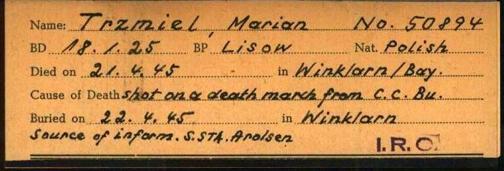 Name: Trzmiel, Marian No. 50894
BD 18.1.25 BP Lisow Nat. Polish
Died on 21.4.45 in Winklarn/Bay.
Cause of Death shot on a death march from C.C. Bu.
Buried on 22.4.45 in Winklarn
Source of inform. S.STA. Arolsen
I.R.O.